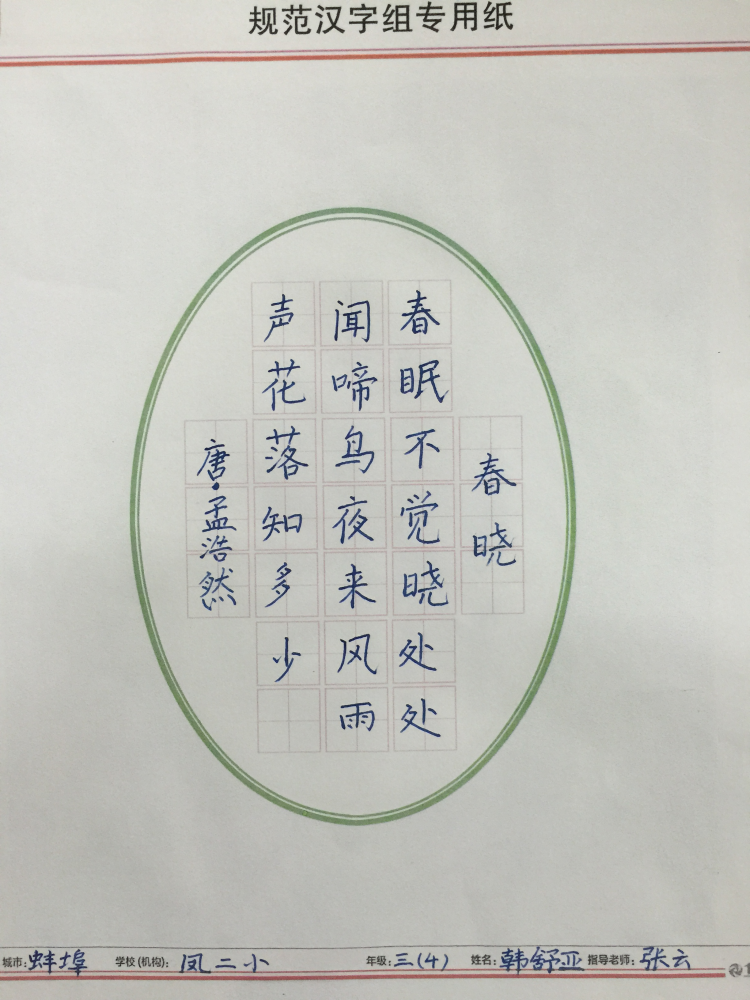 规范汉字组专用纸
春晓
春眠不觉晓处处
闻啼鸟夜来风雨
声花落知多少
唐·孟浩然
城市：蚌埠 学校(机构)：凤二小 年级：三(4) 姓名：韩舒亚 指导老师：张云